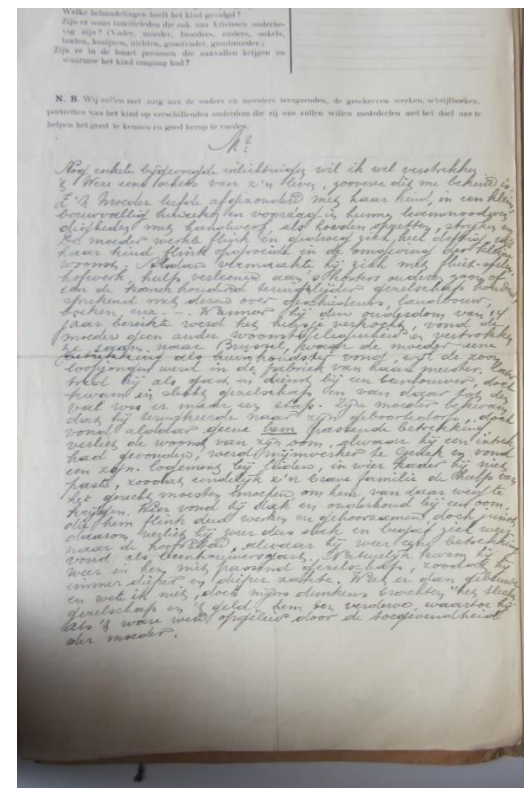 Welke behandelingen heeft het kind gevolgd?
Zijn er soms familieleden die ook aan krisissen onderhe-
vig zijn? (Vader, moeder, broeders, zusters, onkels,
tanten, kozijnen, nichten, grootvader, grootmoeder.)
Zijn er in de buurt personen die aanvallen krijgen en
waarmee het kind omgang had?
N. B. Wij zullen met zorg aan de ouders en meesters terugzenden, de geschreven werken, schrijfboeken,
portretten van het kind op verschillenden ouderdom die zij ons zullen willen mededeelen met het doel ons te
helpen het goed te kennen en goed berop te voeden.
Nog enkele bijgevoegde inlichtingen wil ik wel verstrekken
van z'n leven, zooverre dit me bekend is.
Z'n moeder leefde afgezonderd met haar kind, in een klein
bouwvallig huizeke en voorzag in hunne levensnoodwen-
digheden met handwerk, als hoeden opzetten, strijken enz.
De moeder werkte flink en gedroeg zich heel deftig,
haar kind flink in de omgeving der
woonst. vermaakte hij zich met fluit spelen,
hofwerk hulp verleenen aan
gezelschap
sprekend met dezen over geschiedenis, landbouw,
boeken, enz. Wanneer hij den ouderdom van 14
jaar bereikte werd het huisje verkocht, vond de
moeder geen ander woonst en vertrokken
ze samen naar Brussel, waar de moeder eene
betrekking als huishoudster vond, wijl de zoon
loopjongen werd in de fabriek van haar meester. Later
trad hij als gast in dienst bij een doch
kwam in slecht gezelschap en van daar tot den
val was er maar een stap. Zijne moeder bekwam
dat hij terugkeerde naar zijn geboortedorp, doch
vond aldaar geene hem passende betrekking,
verliet de woonst van zijn oom, alwaar hij een intrek
had gevonden, werd mijnwerker te en vond
een zgn. logement bij lieden, in wier kader hij niet
past, zoodat eindelijk z'n brave familie de hulp van
het gerecht moesten inroepen om hem van daar weg te
krijgen. Weer vond hij dak en onderhoud bij een oom,
die hem flink deed werken en gehoorzamen, doch juist
daarom verliet hij weer dies dak en begaf zich weer
naar de hoofdstad, alwaar hij weer eene betrekking
vond als Natuurlijk kwam hij
weer in hem niet passend gezelschap, zoodat hij
immer dieper en dieper zakte. Wat er dan gebeurde
en weet ik niet, doch mijns dunkens brachten het slecht
gezelschap en 't geld hem ten verderve, waartoe hij
als 't ware werd opgeleid door de toegevendheid
der moeder.